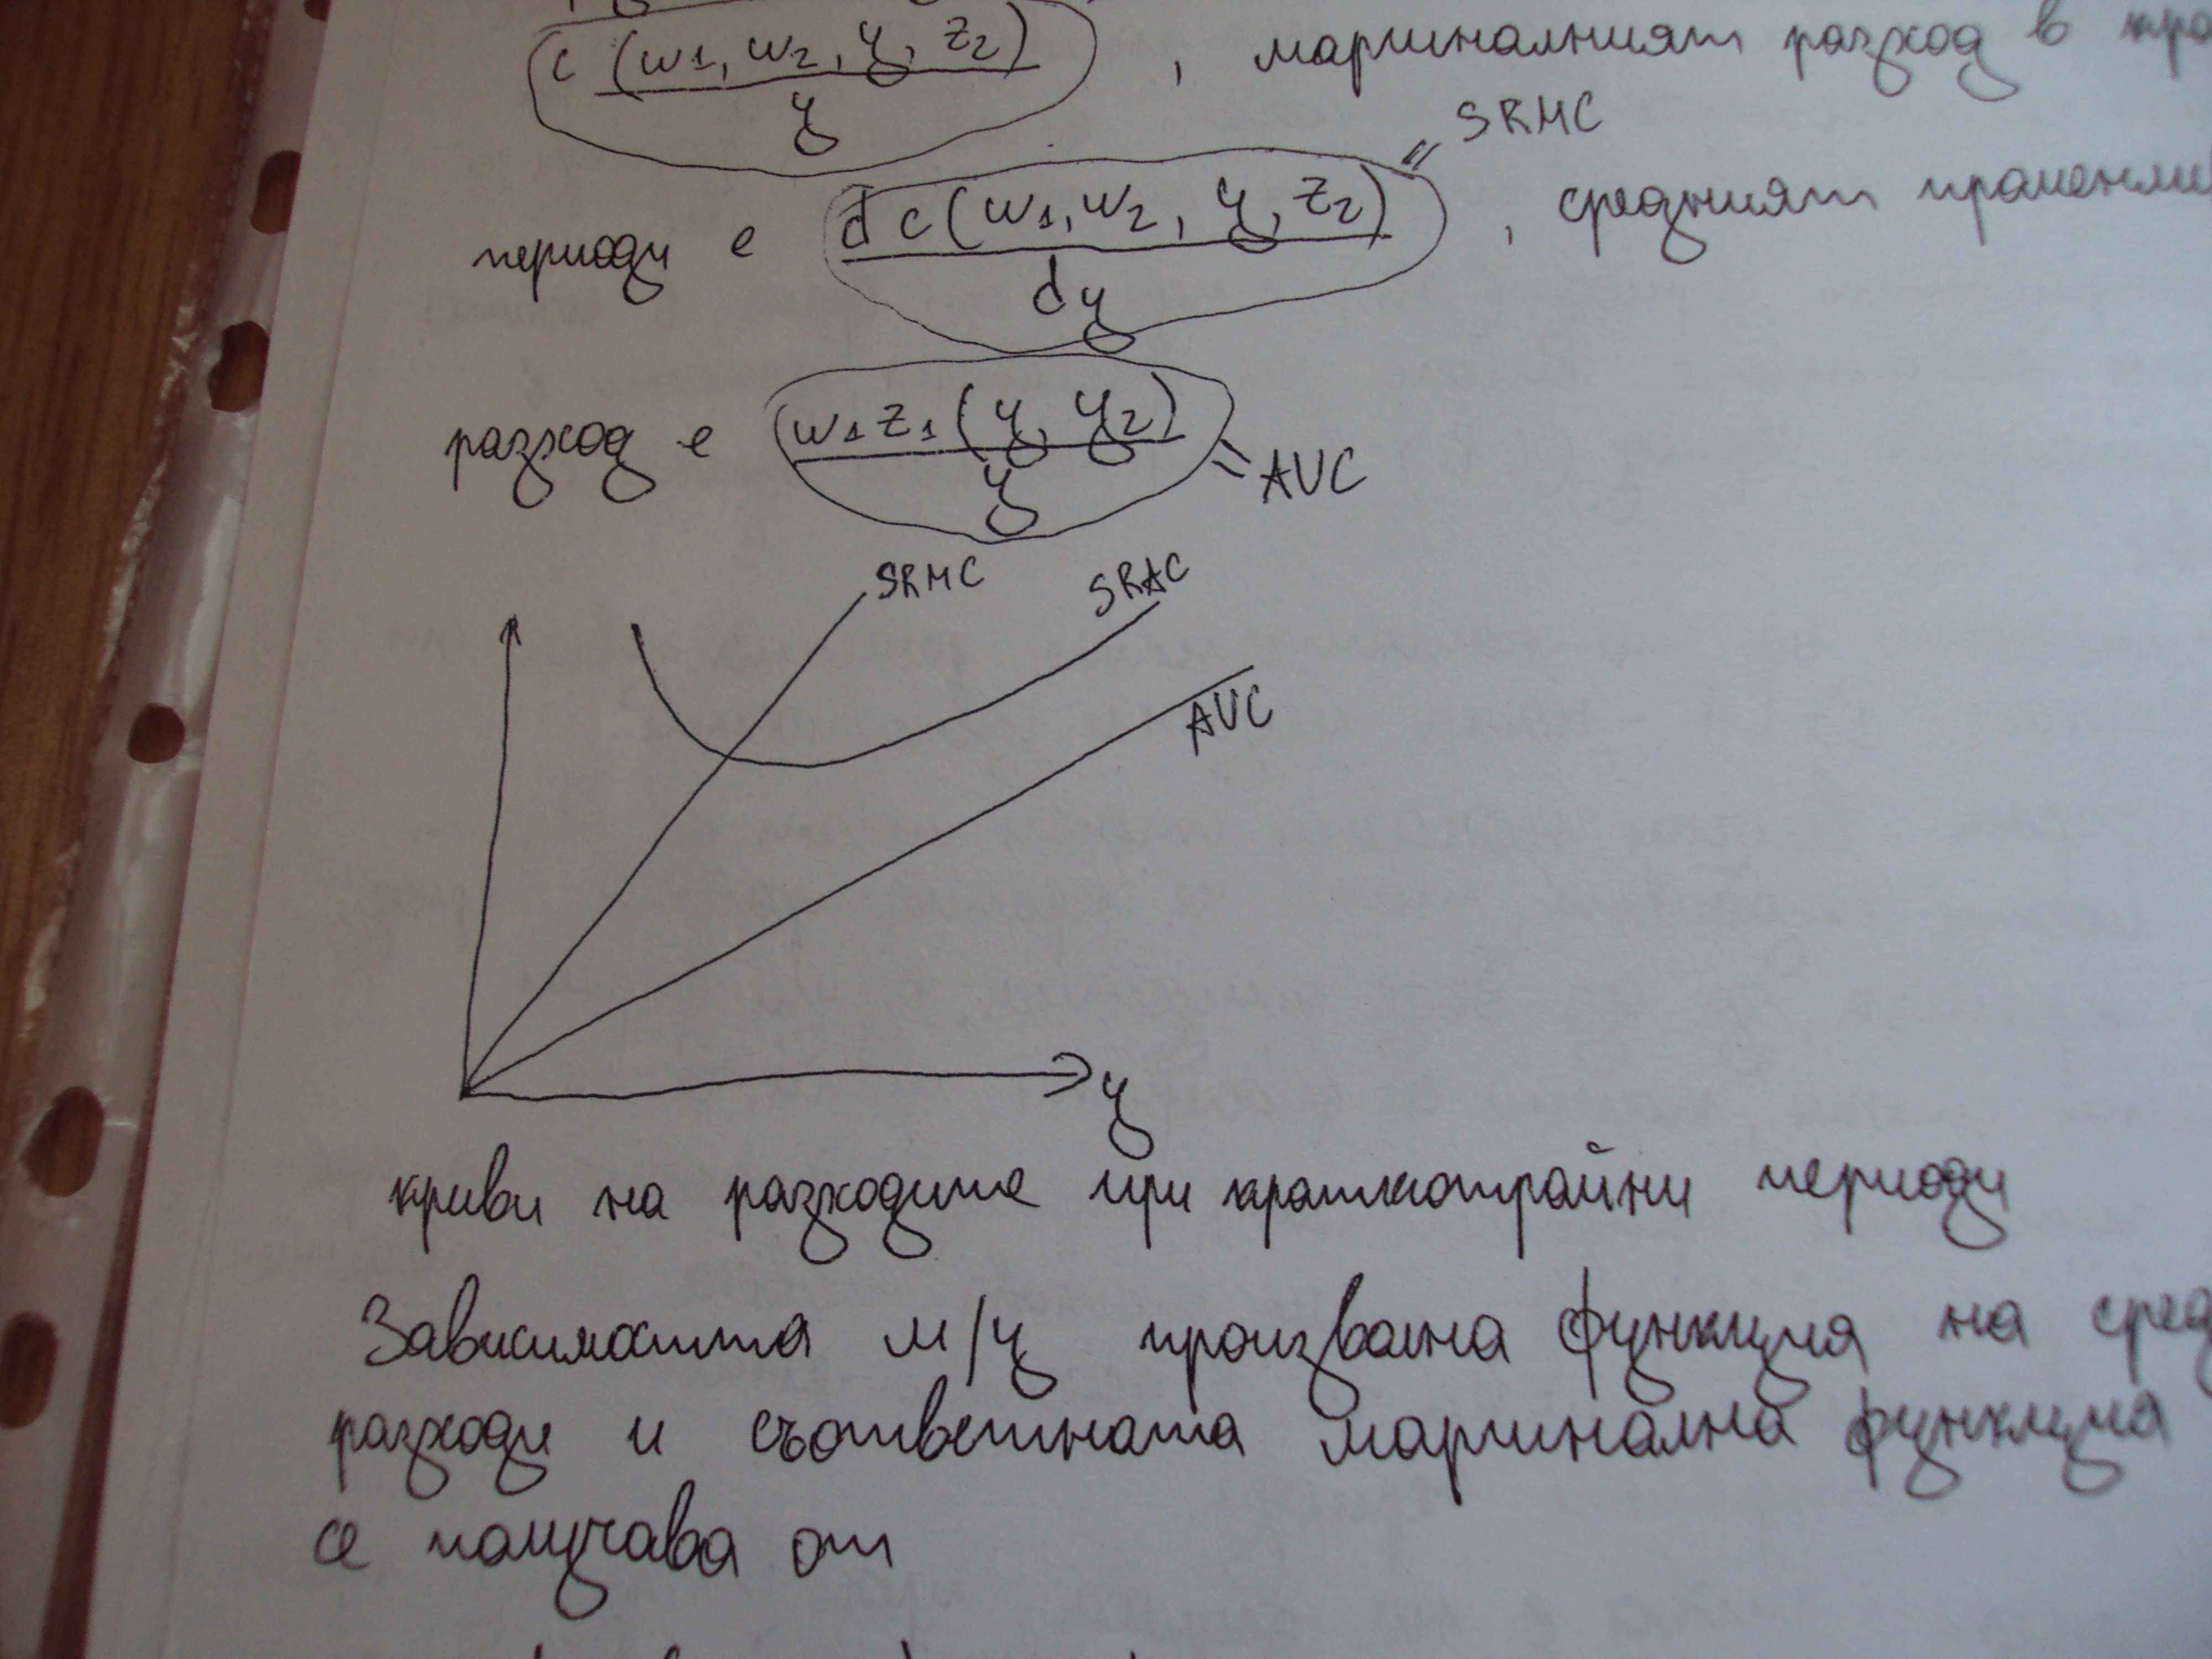 c (w1, w2, y, z2)
y
, маргиналният разход в
= SRMC
периоди е dc(w1, w2, y, z2)
dy
, средният
разход е w1z1(y, y2)
y
= AVC
SRMC
SRAC
AVC
y
криви на разходите при краткотрайни периоди
Зависимостта м/у произволна функция на
разходи и съответната маргинална функция
се получава от